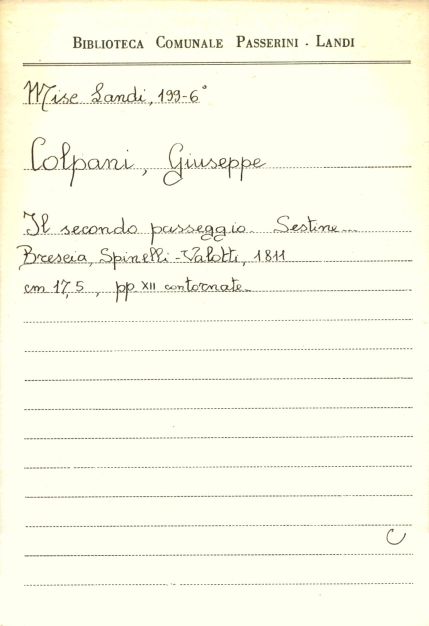 BIBLIOTECA COMUNALE PASSERINI - LANDI
Misc Landi, 199-6°
Colpani, Giuseppe
Il secondo passeggio. Sestine...
Brescia, Spinelli-Valotti, 1811
cm 17,5, pp. XII contornate.
C